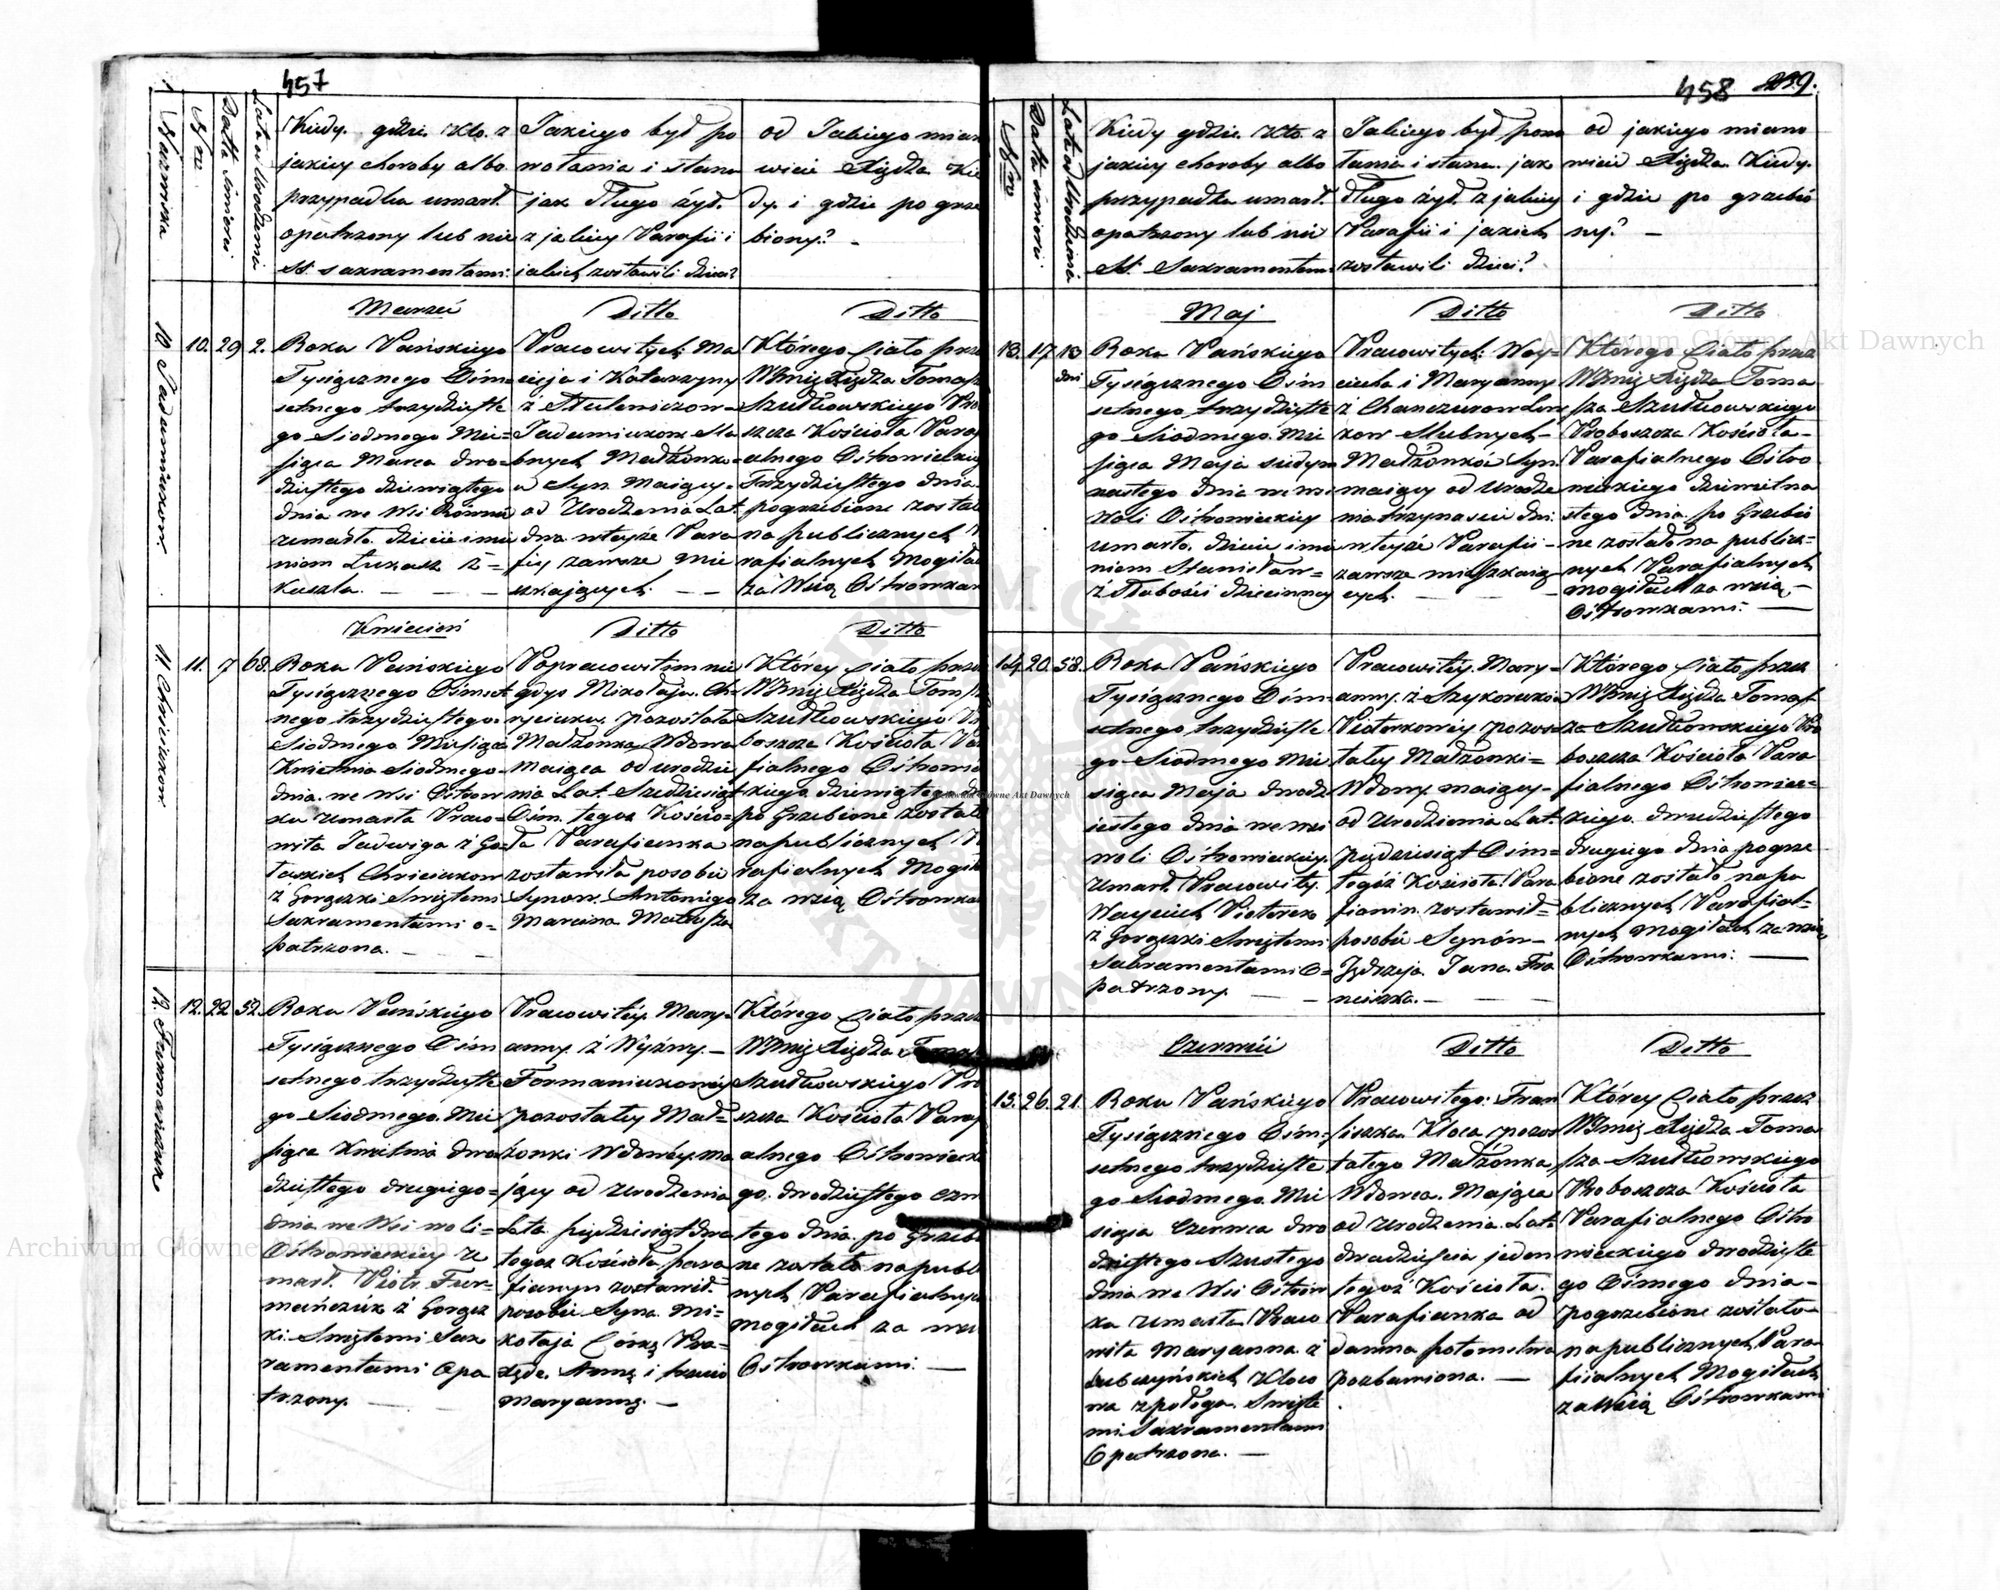 457
Nazwiska
Nro
Datta śmierci
Lata od Urodzenia
Kiedy gdzie kto z
jakiey choroby albo
przypadku umarł
opatrzony lub nie
SS. sakramentami
Jakiego był po
wołania i stanu
jak długo żył.
z jakiey Parafii i
jakich zostawili dzieci?
od Jakiego mian
wicie Xiędza Kie
dy i gdzie po grze
biony? -
Marzec
Ditto
Ditto
10 Jadamiukow
10. 29 2.
Roku Pańskiego
Tysiącznego Ośm
setnego trzydzieste
go Siodmego Mie=
siąca Marca dwu=
dziestego dziewiątego
dnia we Wsi Równi
umarło dziecie imie
niem Łukasz z=
Kaszla. - - -
Pracowitych Ma
cieja i Katarzyny
z
Jadamiukow Slu
bnych Małżonko=
w Syn. Maiący=
od Urodzenia Lat
dwa w teyże Para
fiy zawsze mie
szkaiących. - -
Którego Ciało prze
WJmię Xiędza Tomasz
Szułkowskiego Pro
szcza Kościoła Paraf
alnego Ostrowieckieg
Trzydziestego dnia
pogrzebione został
na publicznych P
rafialnych Mogiłac
za Wsią Ostrowkam
Kwiecień
Ditto
Ditto
11. Chrieiukow
11. 7 68.
Roku Pańskiego
Tysiącznego Ośmset
nego trzydziestego
Siodmego Miesiąca
Kwietnia Siodmego
dnia we Wsi Ostrow
ku umarła Praco=
wita Jadwiga z Go=
z Gorączki Swiętemi
Sakramentami o=
patrzona. - -
Popracowitim nie
gdys Mikołaju Ch=
pozostała
Małżonka Wdowa
Maiąca od urodze
nia Lat Szedziesiąt
Ośm. tegoż Kościo=
ła Parafianka
zostawiła posobie
Synow. Antoniego
Marcina Mateusza
Którey Ciało prze
WJmię Xiędza Tomsz
Szułkowskiego Pr
boszcza Kościoła Pa
fialnego Ostrowi
ckiego dziewiątego d
po Grzebione został
na publicznych P
rafialnych Mogił
za wsią Ostrowka
12. Furmańczuk
12. 22 52.
Roku Pańskiego
Tysiącznego Ośm
setnego trzydzieste
go Siodmego Mie
siąca Kwietnia dwu
dziestego drugiego=
dnia we Wsi woli=
Ostrowieckiey u
marł. Piotr Fur=
mańczuk z Gorącz
ki Swiętemi Sak
ramentami Opa
trzony. - -
Pracowitey Mary=
anny z Wyżny.-
Formaniukowey
pozostałey Mał=
żonki Wdowey ma
jący od Urodzenia
Lata pięcdziesiąt dwa
tegoż Kościoła para
fianyn zostawił
posobie Syna. Mi=
kołaja Córkę Pra=
xedę. Annę i trzecie
Maryannę. -
Którego Ciało przez
WJmię Xiędza Tomasz
Szułkowskiego Pro
szcza Kościoła Paraf
alnego Ostrowieck
go dwudziestego czw
tego dnia po Grzeb
ne zostało na publ
nych Parafialnych
mogiłach za wsi
Ostrowkami. -
458
Nro
Datta śmierci
Lata od Urodzenia
Kiedy gdzie kto z
jakiey choroby albo
przypadku umarł.
opatrzony lub nie
SS. Sakramentam
Jakiego był powo
łania i stanu jak
długo żył. z jakiey
Parafii i jakich
zostawili dzieci?
od jakiego miano
wicie Xiędza Kiedy
i gdzie po grzebio
ny? -
Maj
Ditto
Ditto
13. 17. 13 dni
Roku Pańskiego
Tysiącznego Ośm
setnego trzydzieste
go Siodmego Mie
siąca Maja siedym
nastego dnia we wsi
Woli Ostrowieckiey
umarło dziecie imie
niem Stanisław=
z Słabości dziecinney
Pracowitych Woy=
ciecha i Maryanny
z
Slubnych-
Małżonków Syn
maiący od Urodze
nia trzynascie dni.
w teyże Parafii-
zawsze mieszkaią
cych. - -
Którego Ciało przez
WJmię Xiędza Toma
sza Szułkowskiego
Proboszcza Kościoła-
Parafialnego Ostro
wieckiego dziewietna
stego dnia po Grzebio
ne zostało na publicz=
nych Parafialnych
mogiłach za wsią -
Ostrowkami. -
14. 20. 58.
Roku Pańskiego
Tysiącznego Ośm
setnego trzydzieste
go Siodmego Mie
siąca Maja dwudz
iestego dnia we wsi
woli Ostrowieckiey
Umarł. Pracowity
Woyciech
z Gorączki Swiętemi
Sakramentami O=
patrzony. - -
Pracowitey Mary=
anny z
pozos
tałey Małżonki=
Wdowy maiący-
od Urodzienia Lat
pięcdziesiąt Ośm=
tegoż Kościoła Para
fianin. zostawił=
posobie Synów-
Jędrzeja Jana Fra
nciszka. - -
Którego Ciało przez
WJmię Xiędza Tomas
za Szułkowskiego Pro
boszcza Kościoła Para
fialnego Ostrowiec=
kiego dwudziestego
drugiego dnia pogrze
bione zostało na pu
blicznych Parafial=
nych mogiłach za wsią
Ostrowkami. -
Czerwiec
Ditto
Ditto
15. 26. 21.
Roku Pańskiego
Tysiącznego Ośm=
setnego trzydzieste
go Siodmego Mie
siąca Czerwca dwu
dziestego Szustego
dnia we Wsi Ostrów
ku umarła Praco
wita Maryanna z
Lubczyńskich Kloco
wa z połogu Swięte
mi Sakramentami
Opatrzona. -
Pracowitego: Fran
ciszka Kloca pozos
tałego Małżonka
Wdowca. Mająca
od Urodzenia Lat
dwadzieścia jeden
tegoż Kościoła.
Parafianka od
dawna potomstwa
pozbawiona. -
Którey Ciało przez
WJmię Xiędza Toma
sza Szułkowskiego
Proboszcza Kościoła
Parafialnego Ostro
wieckiego dwudzieste
go Ósmego dnia-
pogrzebione zostało
na publicznych Para
fialnych Mogiłach
za Wsią Ostrowkami
Archiwum Główne Akt Dawnych
Archiwum Główne Akt Dawnych
Archiwum Główne Akt Dawnych